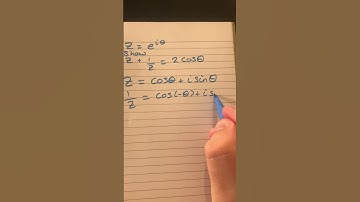 Z = e^iθ
Show
Z + 1/Z = 2cosθ
Z = cosθ + i sinθ
1/Z = cos(-θ) + i s